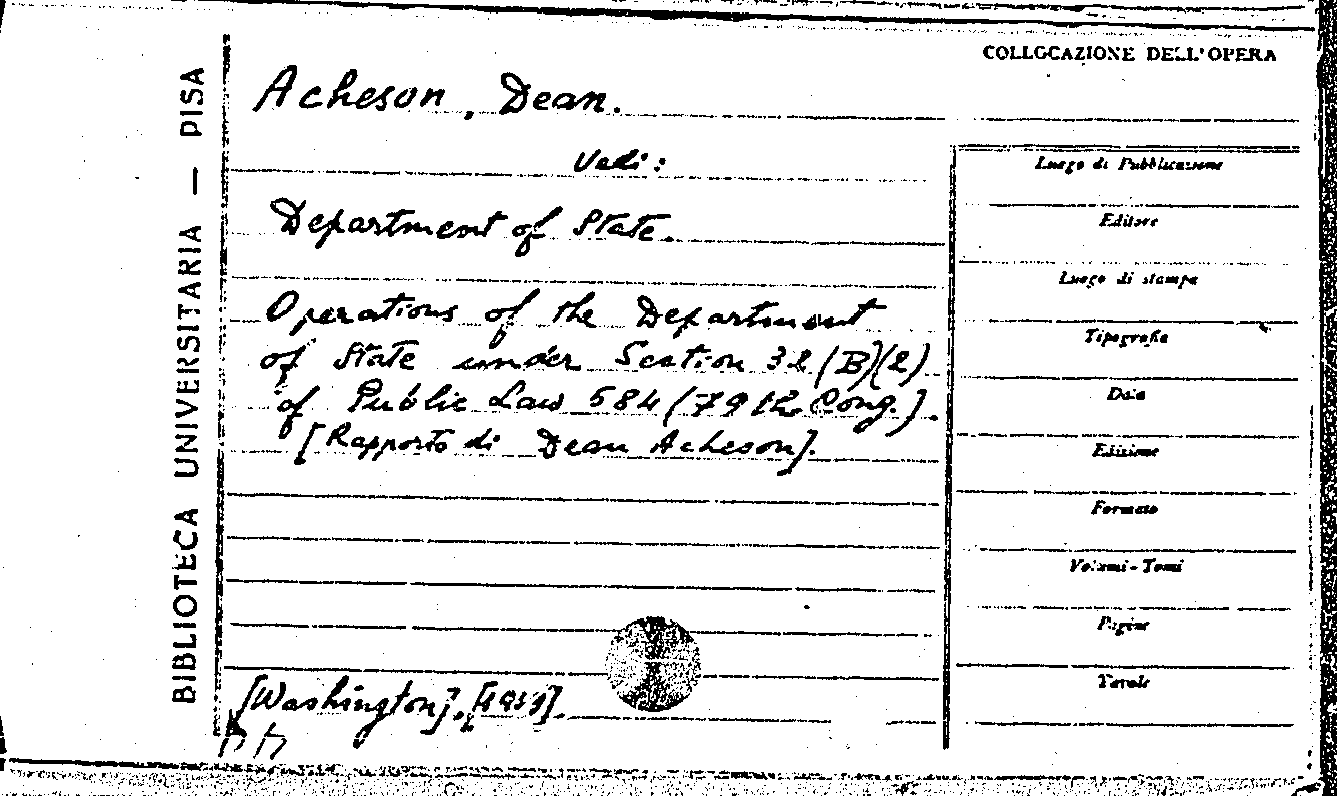 COLLOCAZIONE DELL'OPERA
BIBLIOTECA UNIVERSITARIA — PISA
Acheson, Dean.
Vedi:
Department of State.
Operations of the Department
of State under Section 32(B)(2)
of Public Law 584 (79th Cong.).
[Rapporto di Dean Acheson].
[Washington], [1951].
Luogo di Pubblicazione
Editore
Luogo di stampa
Tipografia
Data
Edizione
Formato
Volumi - Tomi
Pagine
Tavole